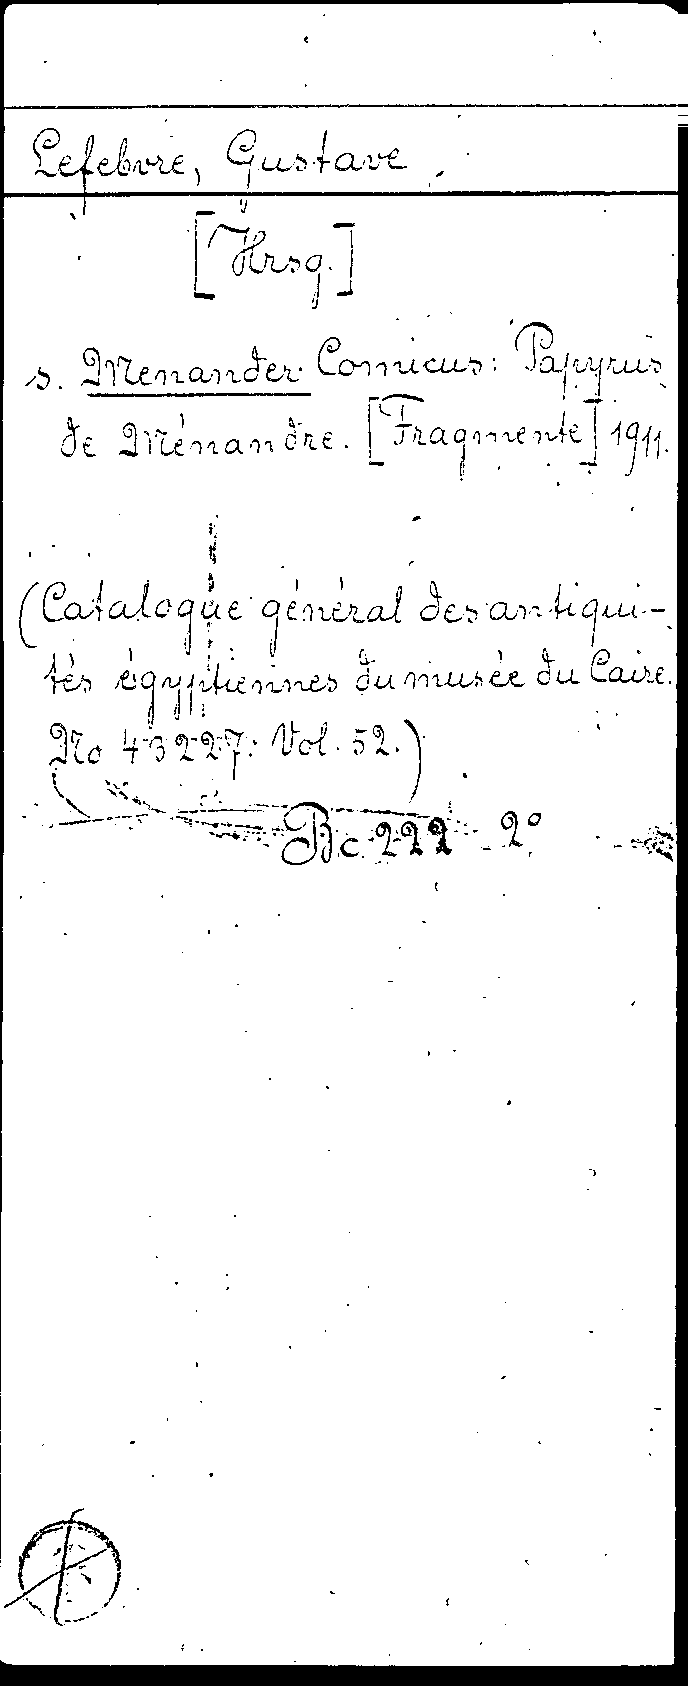 Lefebvre, Gustave
[Hrsg.]
s. Menander Comicus: Papyrus
de Ménandre. [Fragmente] 1911.
(Catalogue général des antiqui-
tés égyptiennes du musée du Caire.
No 43227: Vol. 52.)
Bc 222 2°